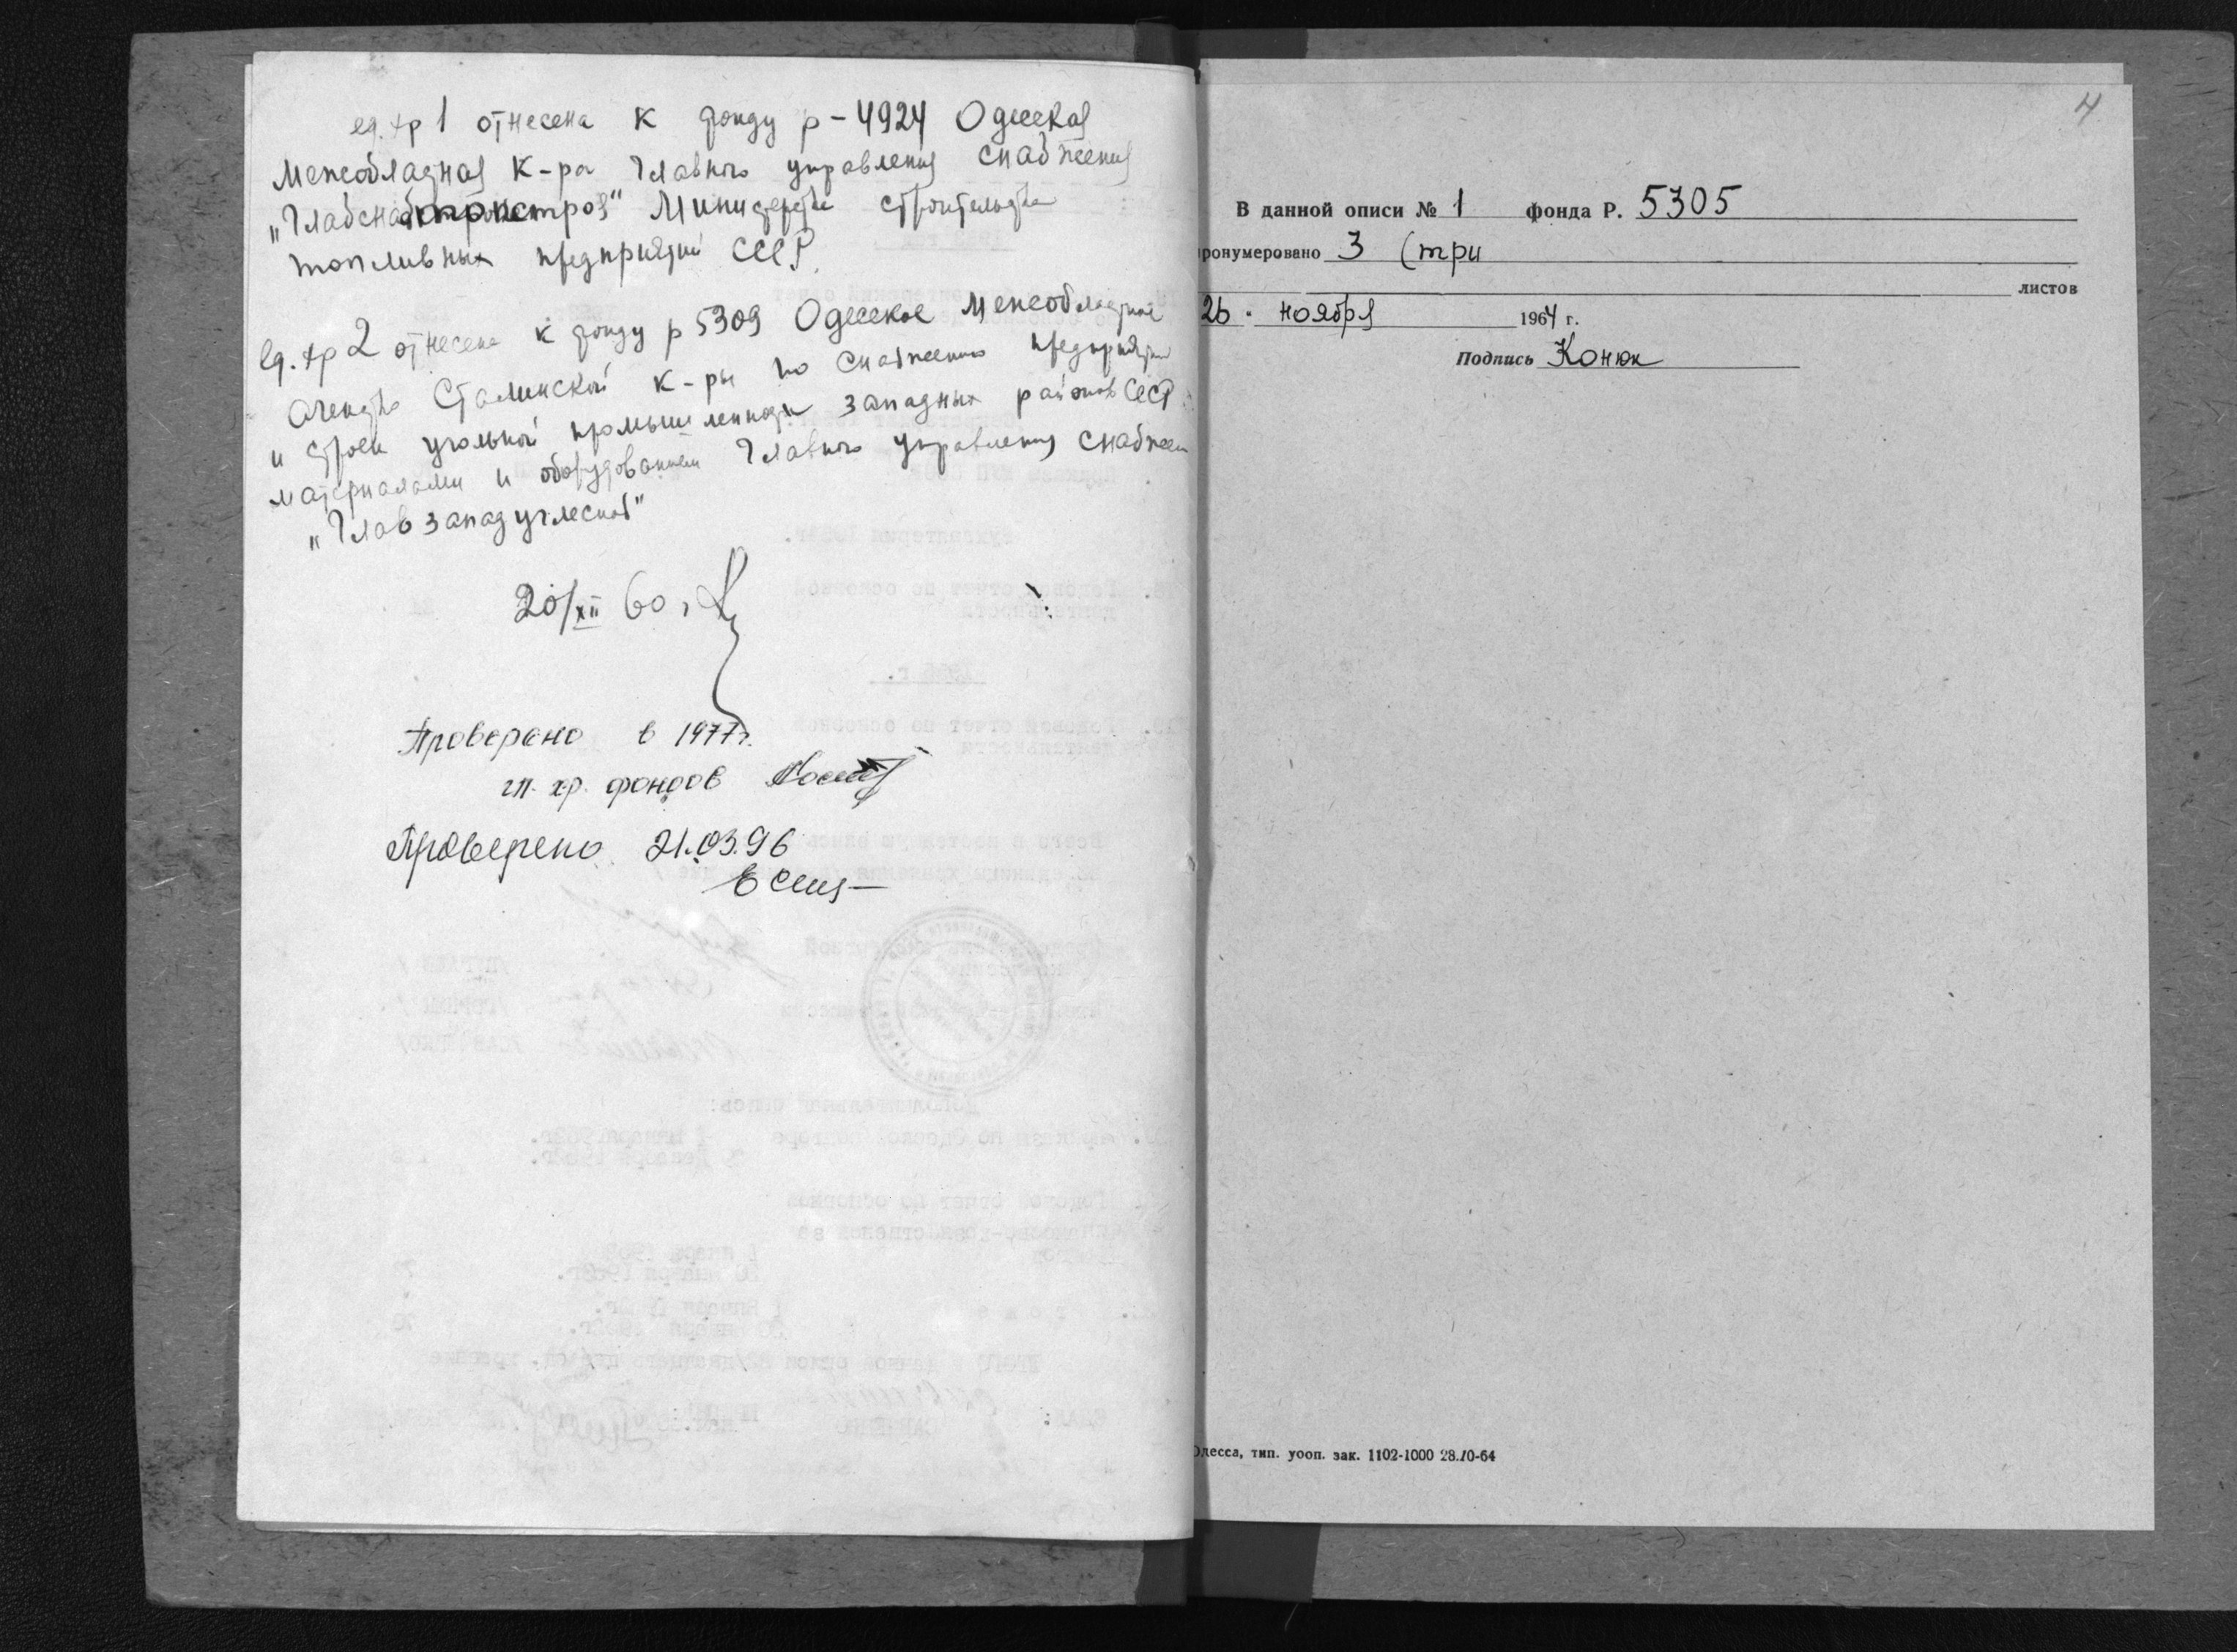 ед. хр 1 отнесена к фонду р-4924 Одесская
межобластная к-ра Главного управления снабжения
„Главснаб" Министерства строительства
топливных предприятий СССР.
Ед. хр 2 отнесена к фонду р 5309 Одесское межобластное
агентство Сталинской к-ры по снабжению предприятий
и строек угольной промышленности западных районов СССР
материалами и оборудованием Главного управления снабжен
„Главзападуглеснаб"
20/XII 60 г
Проверено в 1977г.
хр. фондов
Проверено 21.03.96
4
В данной описи № 1 фонда Р. 5305
ронумеровано 3 (три
листов
26 " ноября 1964 г.
Подпись Конюк
Одесса, тип. уооп. зак. 1102-1000 28.10-64